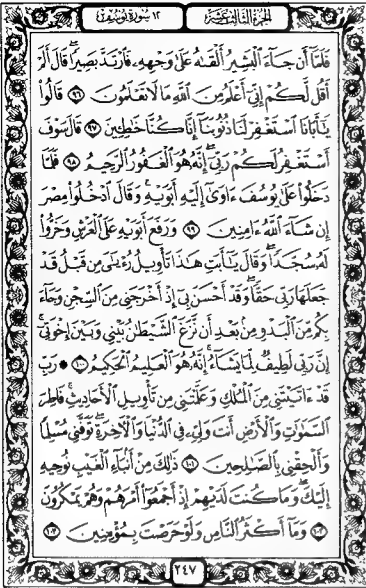 الجزء الثالث عشر
١٢ سورة يوسف
فَلَمَّآ أَن جَآءَ ٱلْبَشِيرُ أَلْقَىٰهُ عَلَىٰ وَجْهِهِۦ فَٱرْتَدَّ بَصِيرًا ۖ قَالَ أَلَمْ
أَقُل لَّكُمْ إِنِّىٓ أَعْلَمُ مِنَ ٱللَّهِ مَا لَا تَعْلَمُونَ ٩٦ قَالُوا۟
يَٰٓأَبَانَا ٱسْتَغْفِرْ لَنَا ذُنُوبَنَآ إِنَّا كُنَّا خَٰطِـِٔينَ ٩٧ قَالَ سَوْفَ
أَسْتَغْفِرُ لَكُمْ رَبِّىٓ ۖ إِنَّهُۥ هُوَ ٱلْغَفُورُ ٱلرَّحِيمُ ٩٨ فَلَمَّا
دَخَلُوا۟ عَلَىٰ يُوسُفَ ءَاوَىٰٓ إِلَيْهِ أَبَوَيْهِ وَقَالَ ٱدْخُلُوا۟ مِصْرَ
إِن شَآءَ ٱللَّهُ ءَامِنِينَ ٩٩ وَرَفَعَ أَبَوَيْهِ عَلَى ٱلْعَرْشِ وَخَرُّوا۟
لَهُۥ سُجَّدًا ۖ وَقَالَ يَٰٓأَبَتِ هَٰذَا تَأْوِيلُ رُءْيَٰىَ مِن قَبْلُ قَدْ
جَعَلَهَا رَبِّى حَقًّا ۖ وَقَدْ أَحْسَنَ بِىٓ إِذْ أَخْرَجَنِى مِنَ ٱلسِّجْنِ وَجَآءَ
بِكُم مِّنَ ٱلْبَدْوِ مِنۢ بَعْدِ أَن نَّزَغَ ٱلشَّيْطَٰنُ بَيْنِى وَبَيْنَ إِخْوَتِىٓ ۚ
إِنَّ رَبِّى لَطِيفٌ لِّمَا يَشَآءُ ۚ إِنَّهُۥ هُوَ ٱلْعَلِيمُ ٱلْحَكِيمُ ١٠٠ رَبِّ
قَدْ ءَاتَيْتَنِى مِنَ ٱلْمُلْكِ وَعَلَّمْتَنِى مِن تَأْوِيلِ ٱلْأَحَادِيثِ ۚ فَاطِرَ
ٱلسَّمَٰوَٰتِ وَٱلْأَرْضِ أَنتَ وَلِىِّۦ فِى ٱلدُّنْيَا وَٱلْءَاخِرَةِ ۖ تَوَفَّنِى مُسْلِمًا
وَأَلْحِقْنِى بِٱلصَّٰلِحِينَ ١٠١ ذَٰلِكَ مِنْ أَنۢبَآءِ ٱلْغَيْبِ نُوحِيهِ
إِلَيْكَ ۖ وَمَا كُنتَ لَدَيْهِمْ إِذْ أَجْمَعُوٓا۟ أَمْرَهُمْ وَهُمْ يَمْكُرُونَ
١٠٢ وَمَآ أَكْثَرُ ٱلنَّاسِ وَلَوْ حَرَصْتَ بِمُؤْمِنِينَ ١٠٣
٢٤٧